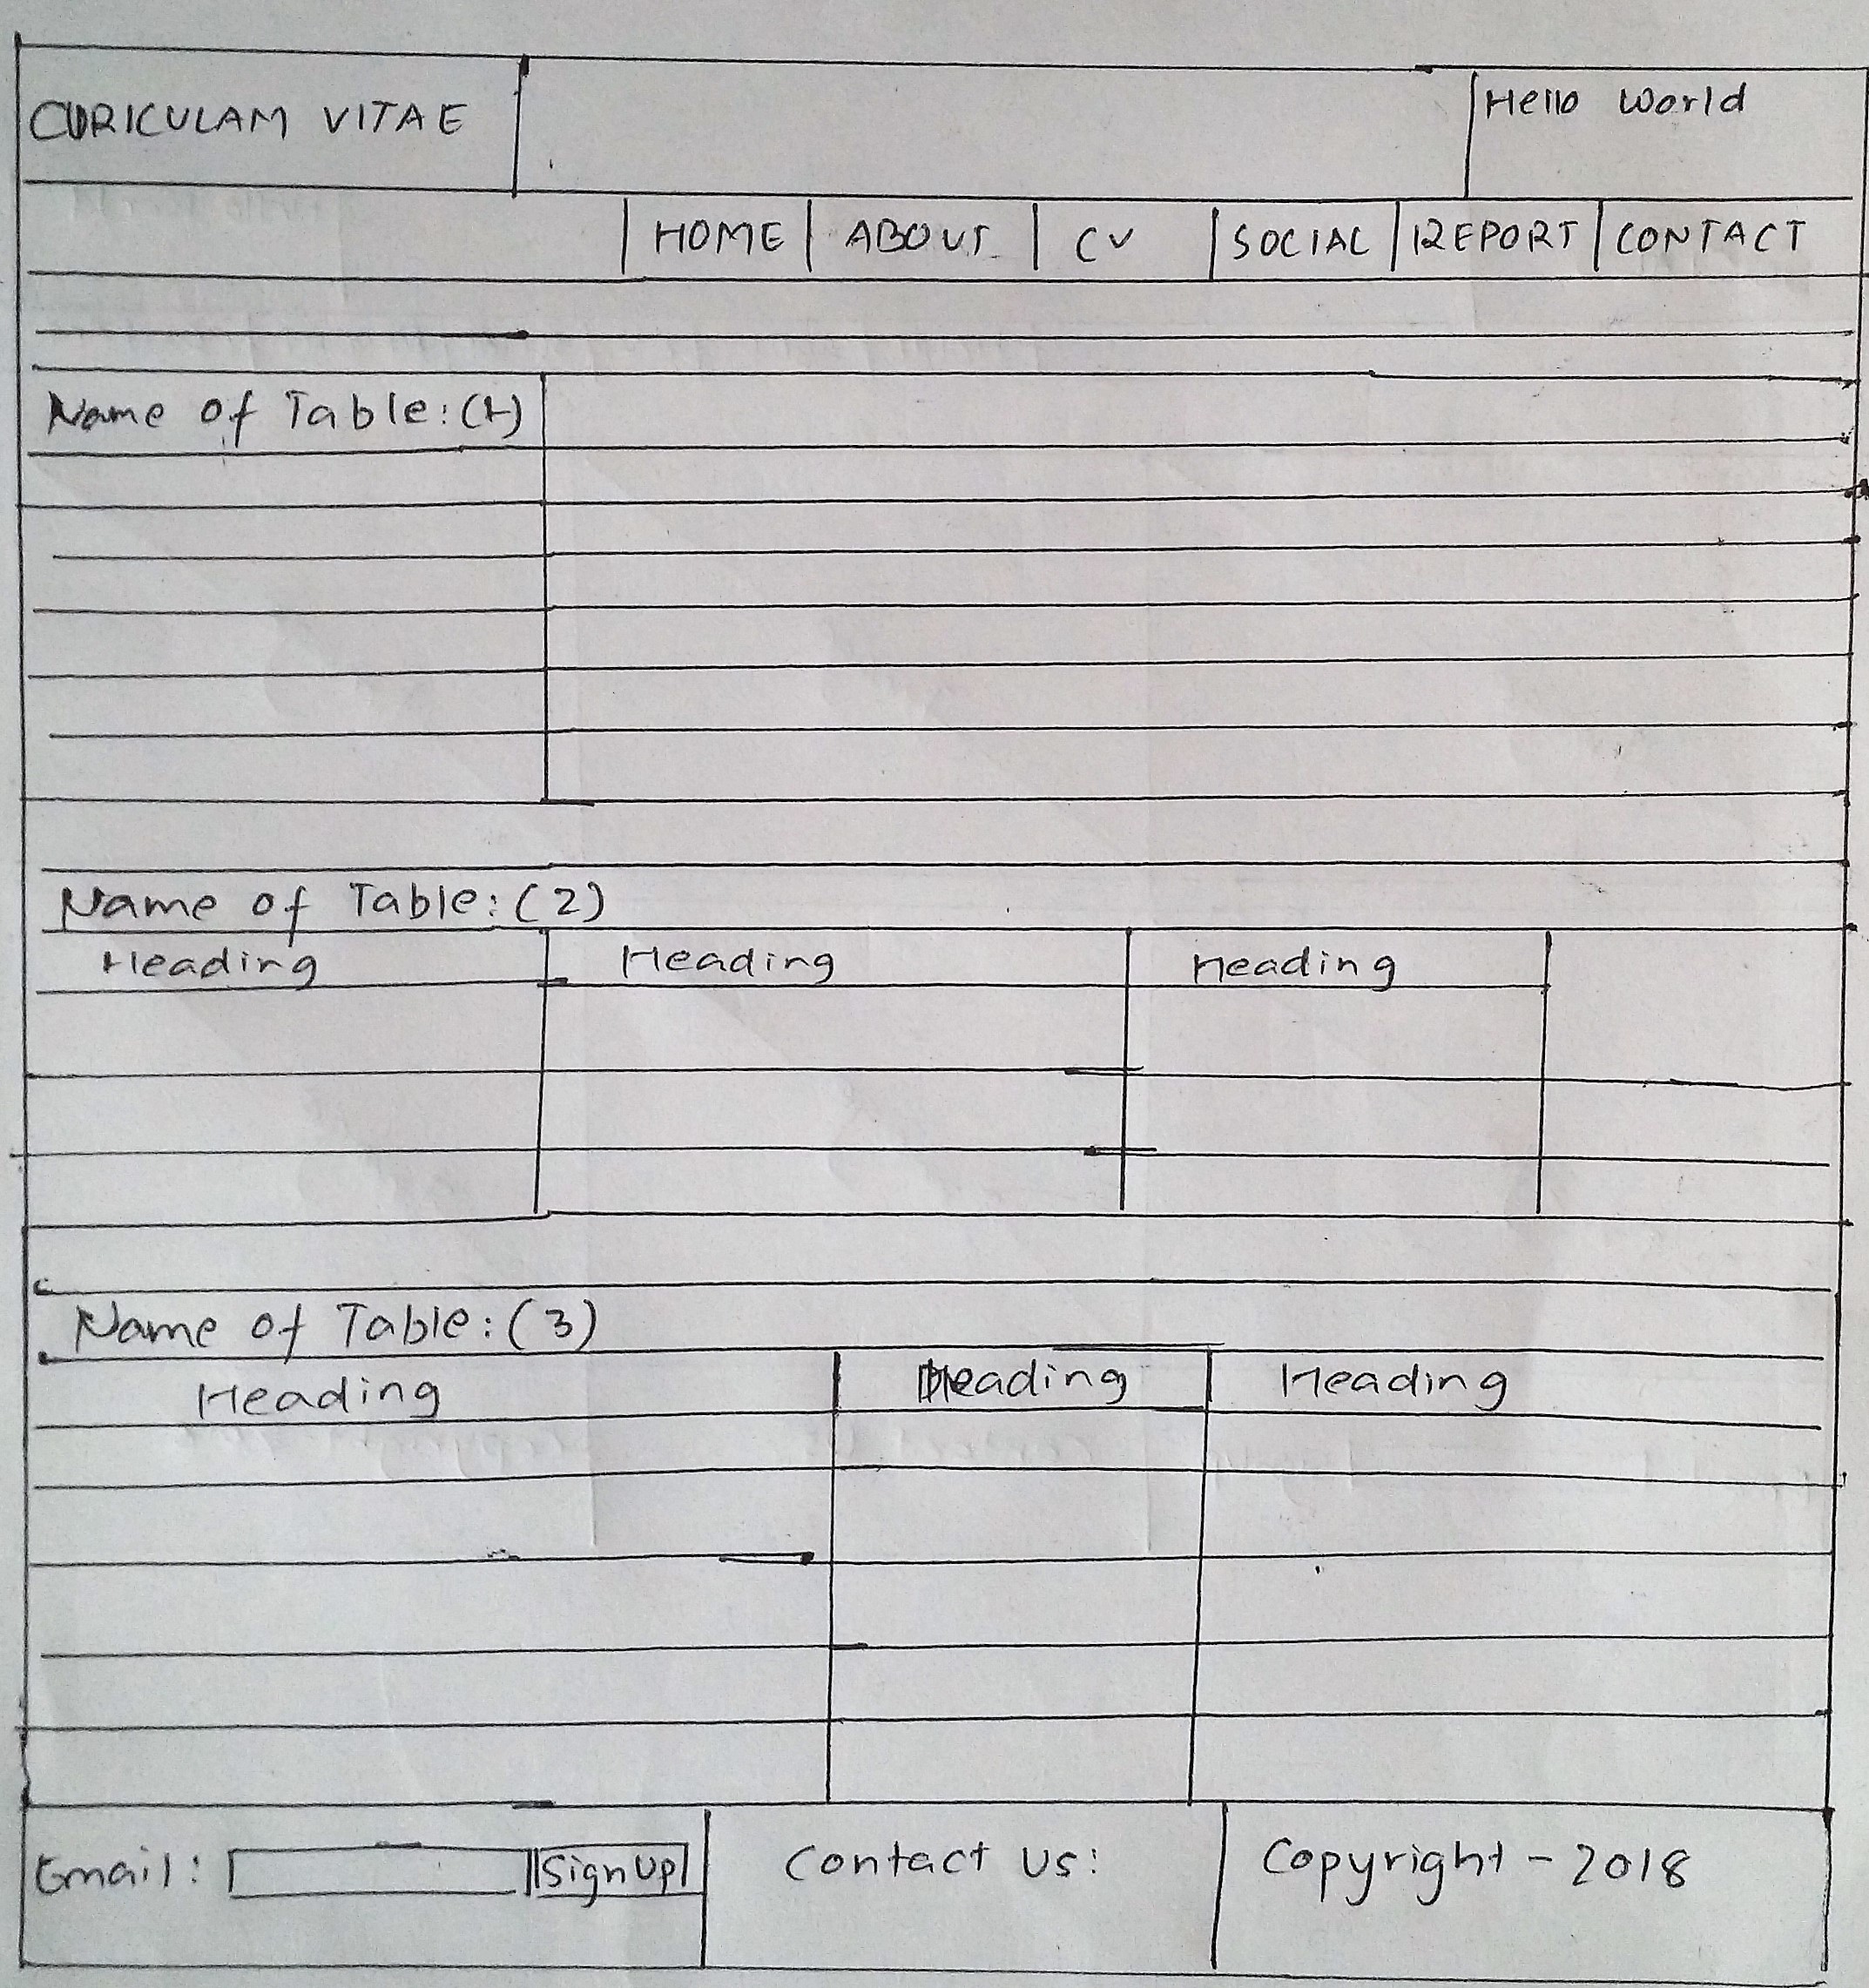 CURICULAM VITAE
Hello World
HOME ABOUT CV SOCIAL REPORT CONTACT
Name of Table:(1)
Name of Table:(2)
Heading Heading Heading
Name of Table:(3)
Heading Heading Heading
Email: Sign Up Contact Us: Copyright - 2018